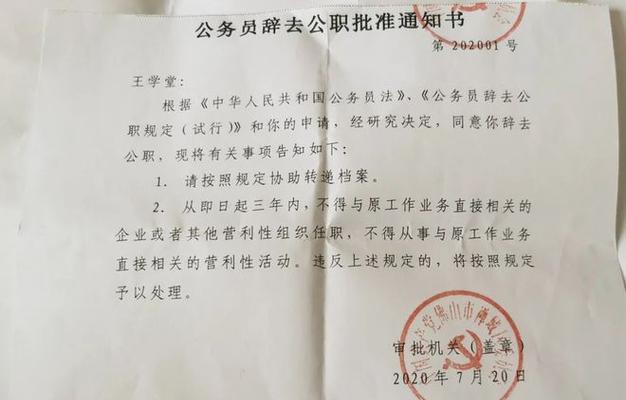 公务员辞去公职批准通知书
第 202001 号
王学堂：
根据《中华人民共和国公务员法》、《公务员辞去公
职规定（试行）》和你的申请，经研究决定，同意你辞去
公职，现将有关事项告知如下：
1. 请按照规定协助转递档案。
2. 从即日起三年内，不得与原工作业务直接相关的
企业或者其他营利性组织任职，不得从事与原工作业务
直接相关的营利性活动。违反上述规定的，将按照规定
予以处理。
党佛山市禅城
审批机关（盖章）
2020 年 7 月 20 日